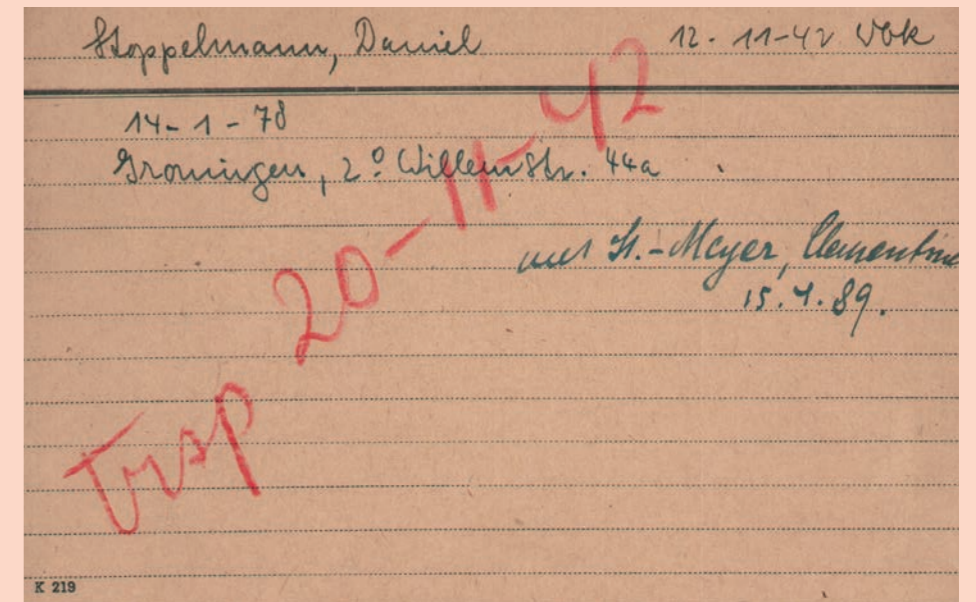 Stoppelmann, Daniel 12-11-42 Wbk
14-1-78
Groningen, 2º Willemstr. 44a
St.-Meyer, Clementine
15.4.89.
Trsp 20-11-42
K 219